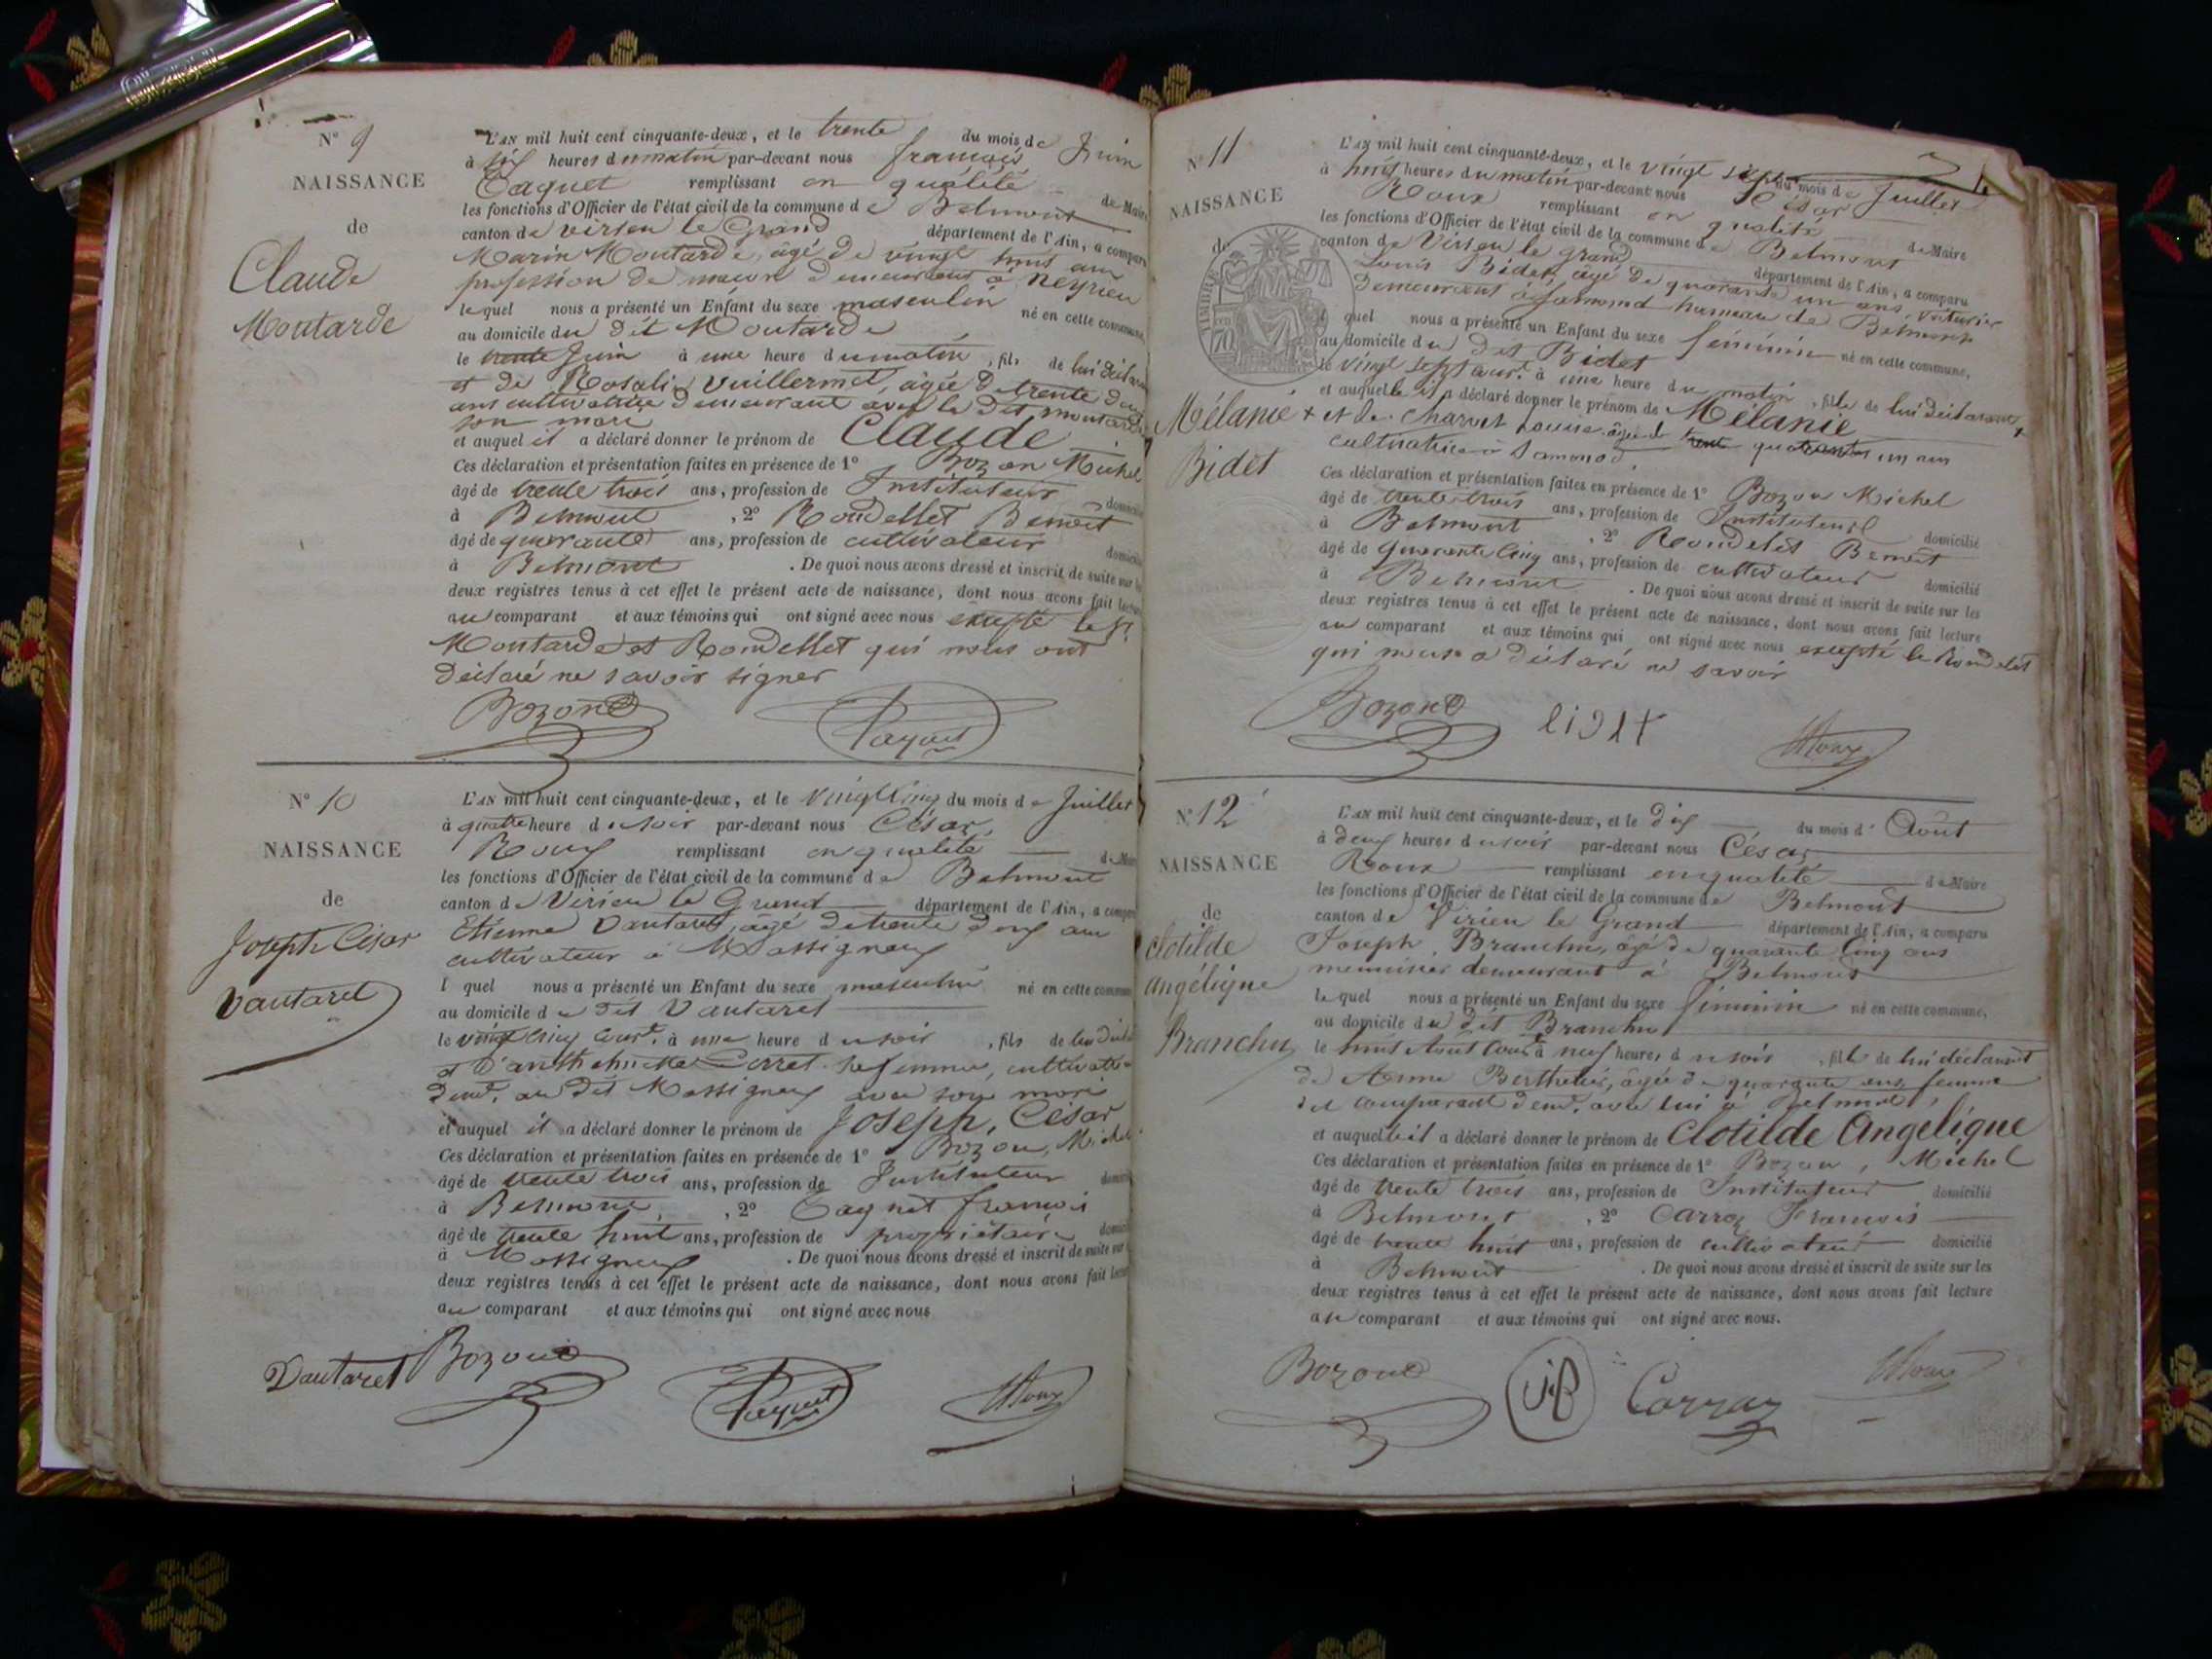 N° 9
NAISSANCE
de
Claude
Moutarde
L'AN mil huit cent cinquante-deux, et le trente du mois de Juin
à six heures du matin par-devant nous françois
Paquet remplissant en qualité de Maire
les fonctions d'Officier de l'état civil de la commune de Belmont
canton de virieu le Grand département de l'Ain, a comparu
Marin Moutarde, âgé de vingt huit ans
profession de maçon demeurant à neyrieu
lequel nous a présenté un Enfant du sexe masculin né en cette commune,
au domicile du dit Moutarde
le trente Juin à une heure du matin, fils de lui déclarant
et de Rosalie Vuillermet, âgée de trente deux
ans cultivatrice demeurant avec le dit moutarde
son mari
et auquel il a déclaré donner le prénom de Claude
Ces déclaration et présentation faites en présence de 1° Bozon Michel
âgé de trente trois ans, profession de Instituteur domicilié
à Belmont, 2° Rondellet Benoit
âgé de quarante ans, profession de cultivateur domicilié
à Belmont. De quoi nous avons dressé et inscrit de suite sur les
deux registres tenus à cet effet le présent acte de naissance, dont nous avons fait lecture
au comparant et aux témoins qui ont signé avec nous excepté les
Moutarde et Rondellet qui nous ont
déclaré ne savoir signer
Bozon Paquet
N° 10
NAISSANCE
de
Joseph César
Vautaret
L'AN mil huit cent cinquante-deux, et le vingt cinq du mois de Juillet
à quatre heure du soir par-devant nous César
Roux remplissant en qualité de Maire
les fonctions d'Officier de l'état civil de la commune de Belmont
canton de Virieu le Grand département de l'Ain, a comparu
Etienne Vautaret, âgé de trente deux ans
cultivateur à Massigneux
l quel nous a présenté un Enfant du sexe masculin né en cette commune
au domicile du dit Vautaret
le vingt cinq cour.t à une heure du soir, fils de lui
et Cerret sa femme, cultivatrice
dem.t au dit Massigneux avec son mari
et auquel il a déclaré donner le prénom de Joseph, César
Ces déclaration et présentation faites en présence de 1° Bozon, Michel
âgé de trente trois ans, profession de Instituteur domicilié
à Belmont, 2° Paquet françois
âgé de trente huit ans, profession de propriétaire domicilié
à Massigneux. De quoi nous avons dressé et inscrit de suite sur
deux registres tenus à cet effet le présent acte de naissance, dont nous avons fait lecture
au comparant et aux témoins qui ont signé avec nous
Vautaret Bozon Paquet Roux
N° 11
NAISSANCE
de
TIMBRE
Mélanie
Bidet
L'AN mil huit cent cinquante-deux, et le vingt sept du mois de Juillet
à huit heures du matin par-devant nous César
Roux remplissant en qualité de Maire
les fonctions d'Officier de l'état civil de la commune de Belmont
canton de Virieu le grand département de l'Ain, a comparu
Louis Bidet, âgé de quarante un ans, voiturier
demeurant à Samonod hameau de Belmont
l quel nous a présenté un Enfant du sexe féminin né en cette commune,
au domicile du dit Bidet
le vingt sept cour.t à une heure du matin, fille de lui déclarant,
et auquelle il a déclaré donner le prénom de Mélanie
+ et de Charvet Louise âgée de trente quarante un ans
cultivatrice à Samonod
Ces déclaration et présentation faites en présence de 1° Bozon Michel
âgé de trente trois ans, profession de Instituteur domicilié
à Belmont, 2° Rondelet Benoit
âgé de quarante cinq ans, profession de cultivateur domicilié
à Belmont. De quoi nous avons dressé et inscrit de suite sur les
deux registres tenus à cet effet le présent acte de naissance, dont nous avons fait lecture
au comparant et aux témoins qui ont signé avec nous excepté le Rondelet
qui nous a déclaré ne savoir
Bozon Roux
N° 12
NAISSANCE
de
Clotilde
Angélique
Branchu
L'AN mil huit cent cinquante-deux, et le dix du mois d' Août
à deux heures du soir par-devant nous César
Roux remplissant en qualité de Maire
les fonctions d'Officier de l'état civil de la commune de Belmont
canton de Virieu le Grand département de l'Ain, a comparu
Joseph Branchu, âgé de quarante cinq ans
menuisier demeurant à Belmont
lequel nous a présenté un Enfant du sexe féminin né en cette commune,
au domicile du dit Branchu
le huit Août cour.t à neuf heures du soir, fille de lui déclarant
de Anne Berthelet, âgée de quarante ans, femme
du comparant dem.t avec lui à Belmont,
et auquelle il a déclaré donner le prénom de Clotilde Angélique
Ces déclaration et présentation faites en présence de 1° Bozon, Michel
âgé de trente trois ans, profession de Instituteur domicilié
à Belmont, 2° Carraz François
âgé de trente huit ans, profession de cultivateur domicilié
à Belmont. De quoi nous avons dressé et inscrit de suite sur les
deux registres tenus à cet effet le présent acte de naissance, dont nous avons fait lecture
au comparant et aux témoins qui ont signé avec nous.
Bozon JB Carraz Roux